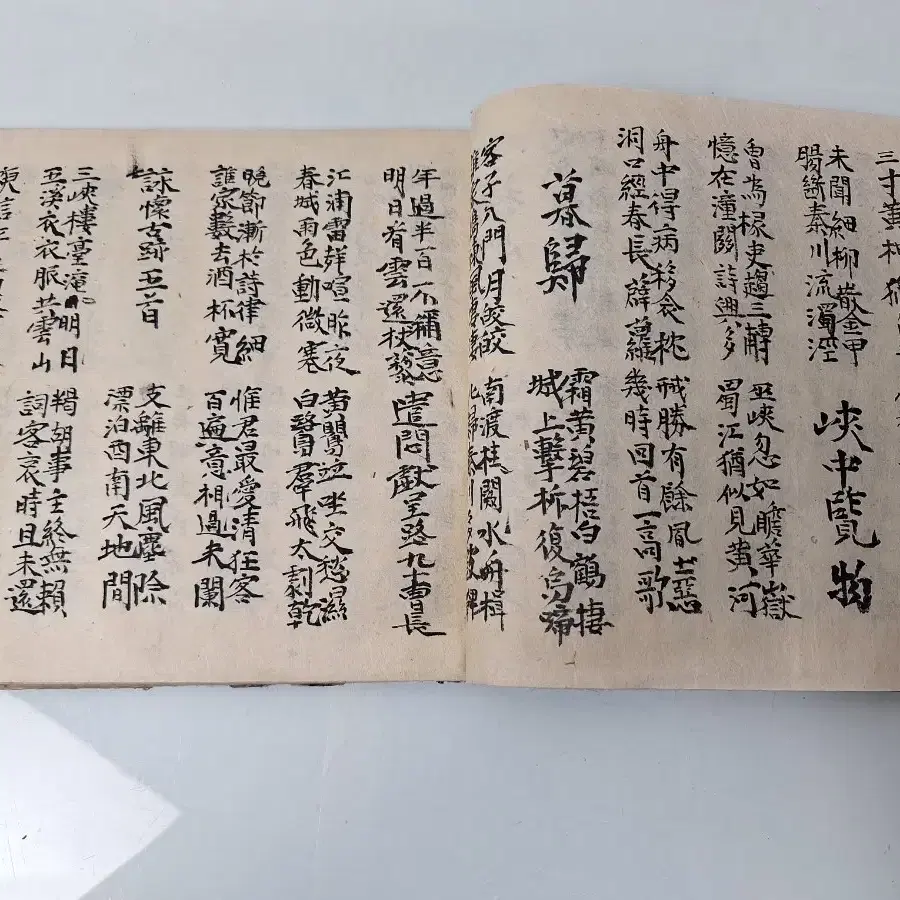 三寸黃柑猶
未聞細柳散金甲
腸斷秦川流濁涇
峽中覽物
曾為掾吏趨三轉
憶在潼關詩興多
巫峽忽如瞻華嶽
蜀江猶似見黃河
舟中得病移衾枕
洞口經春長薜蘿
形勝有餘風土惡
幾時回首一高歌
暮歸
霜黃碧梧白鶴棲
城上擊柝復烏啼
客子入門月皎皎
南渡桂闕水舟楫
年過半百不稱意
明日看雲還杖藜
遣悶戲呈路九曺長
江浦雷聲喧昨夜
春城雨色動微寒
黃鸎並坐交愁濕
白鷺羣飛太劇乾
晚節漸於詩律細
誰家數去酒杯寬
惟君最愛清狂客
百遍意相過未闌
詠懷古跡五首
支離東北風塵際
漂泊西南天地間
三峽樓臺淹明日
五溪衣衣服共雲山
羯胡事主終無賴
詞客哀時且未還
庾信平